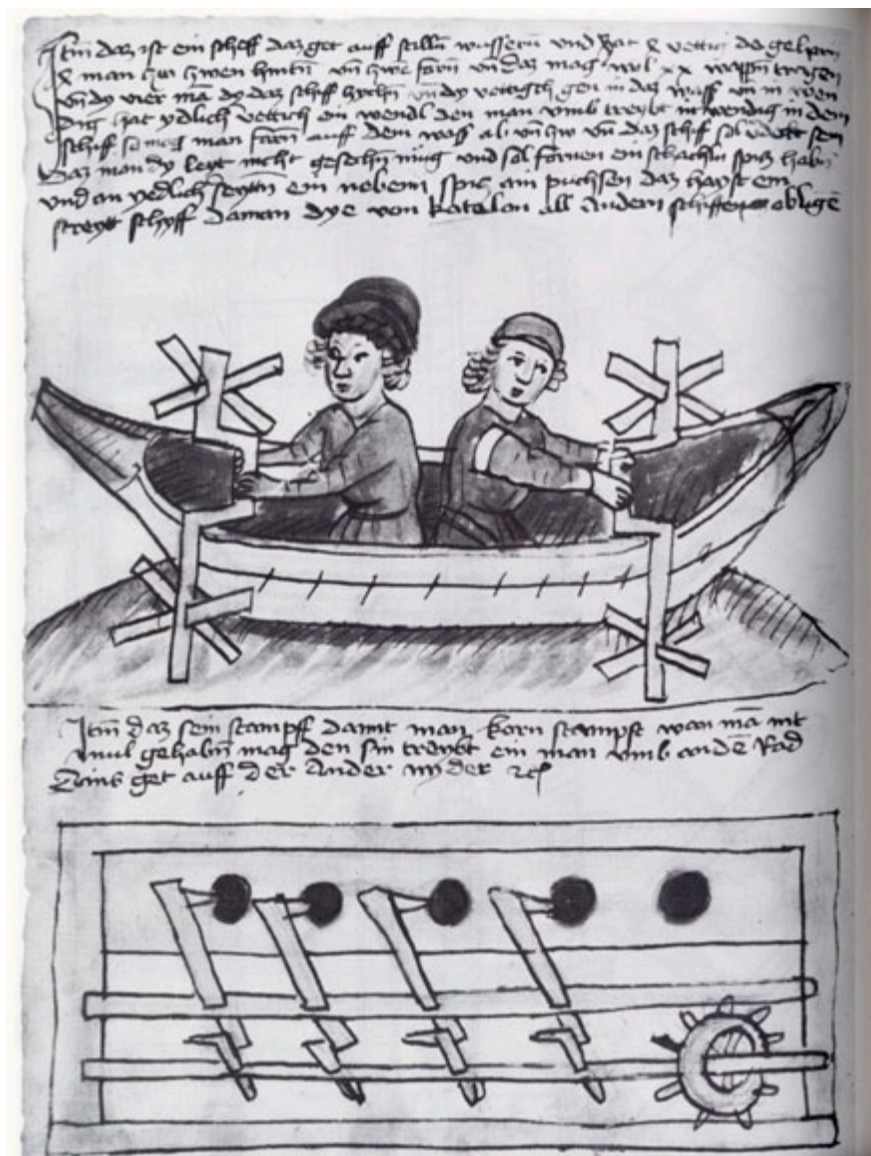 Itm daz ist ein scheff daz get auff stilln wassern und hat & vettig do gehorn
& man zw zwen hintn vn zwe forn vn daz mag wol xx wappn tragen
vn dy vier ma dy daz schif zychn vn dy vettigch gen in daz wass vn in wen
dig hat ydlich vettich ein wendl den man umb treybt in wendig in dem
schif so mag man farn auff dem wass ab vn zw vn daz schif sol v̄dekt sein
Daz man dy lewt nicht gesechn mug und sol fornen ein spiz habn
und an yedlich seyttn ein nebenn spis ain puchsen daz hayst ein
streyt schyff Daman dye von katalon all andern schiffen obligē
Itm daz sein stampff damit man korn stampft wan mā nit
mul gehabn mag den sin treybt ein man umb an dē Rad
Ains get auff der Ander nyder